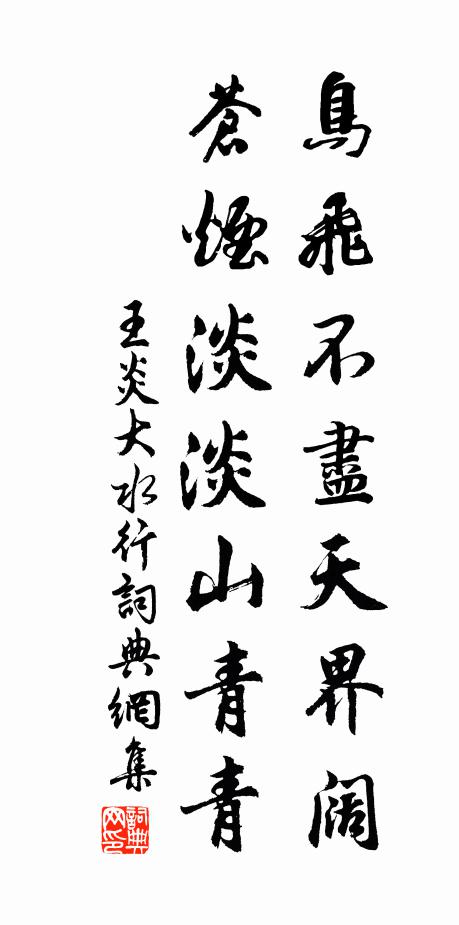 鳥飛不盡天界闊
蒼煙淡淡山青青
王炎大水行詞典網集
詞典網印